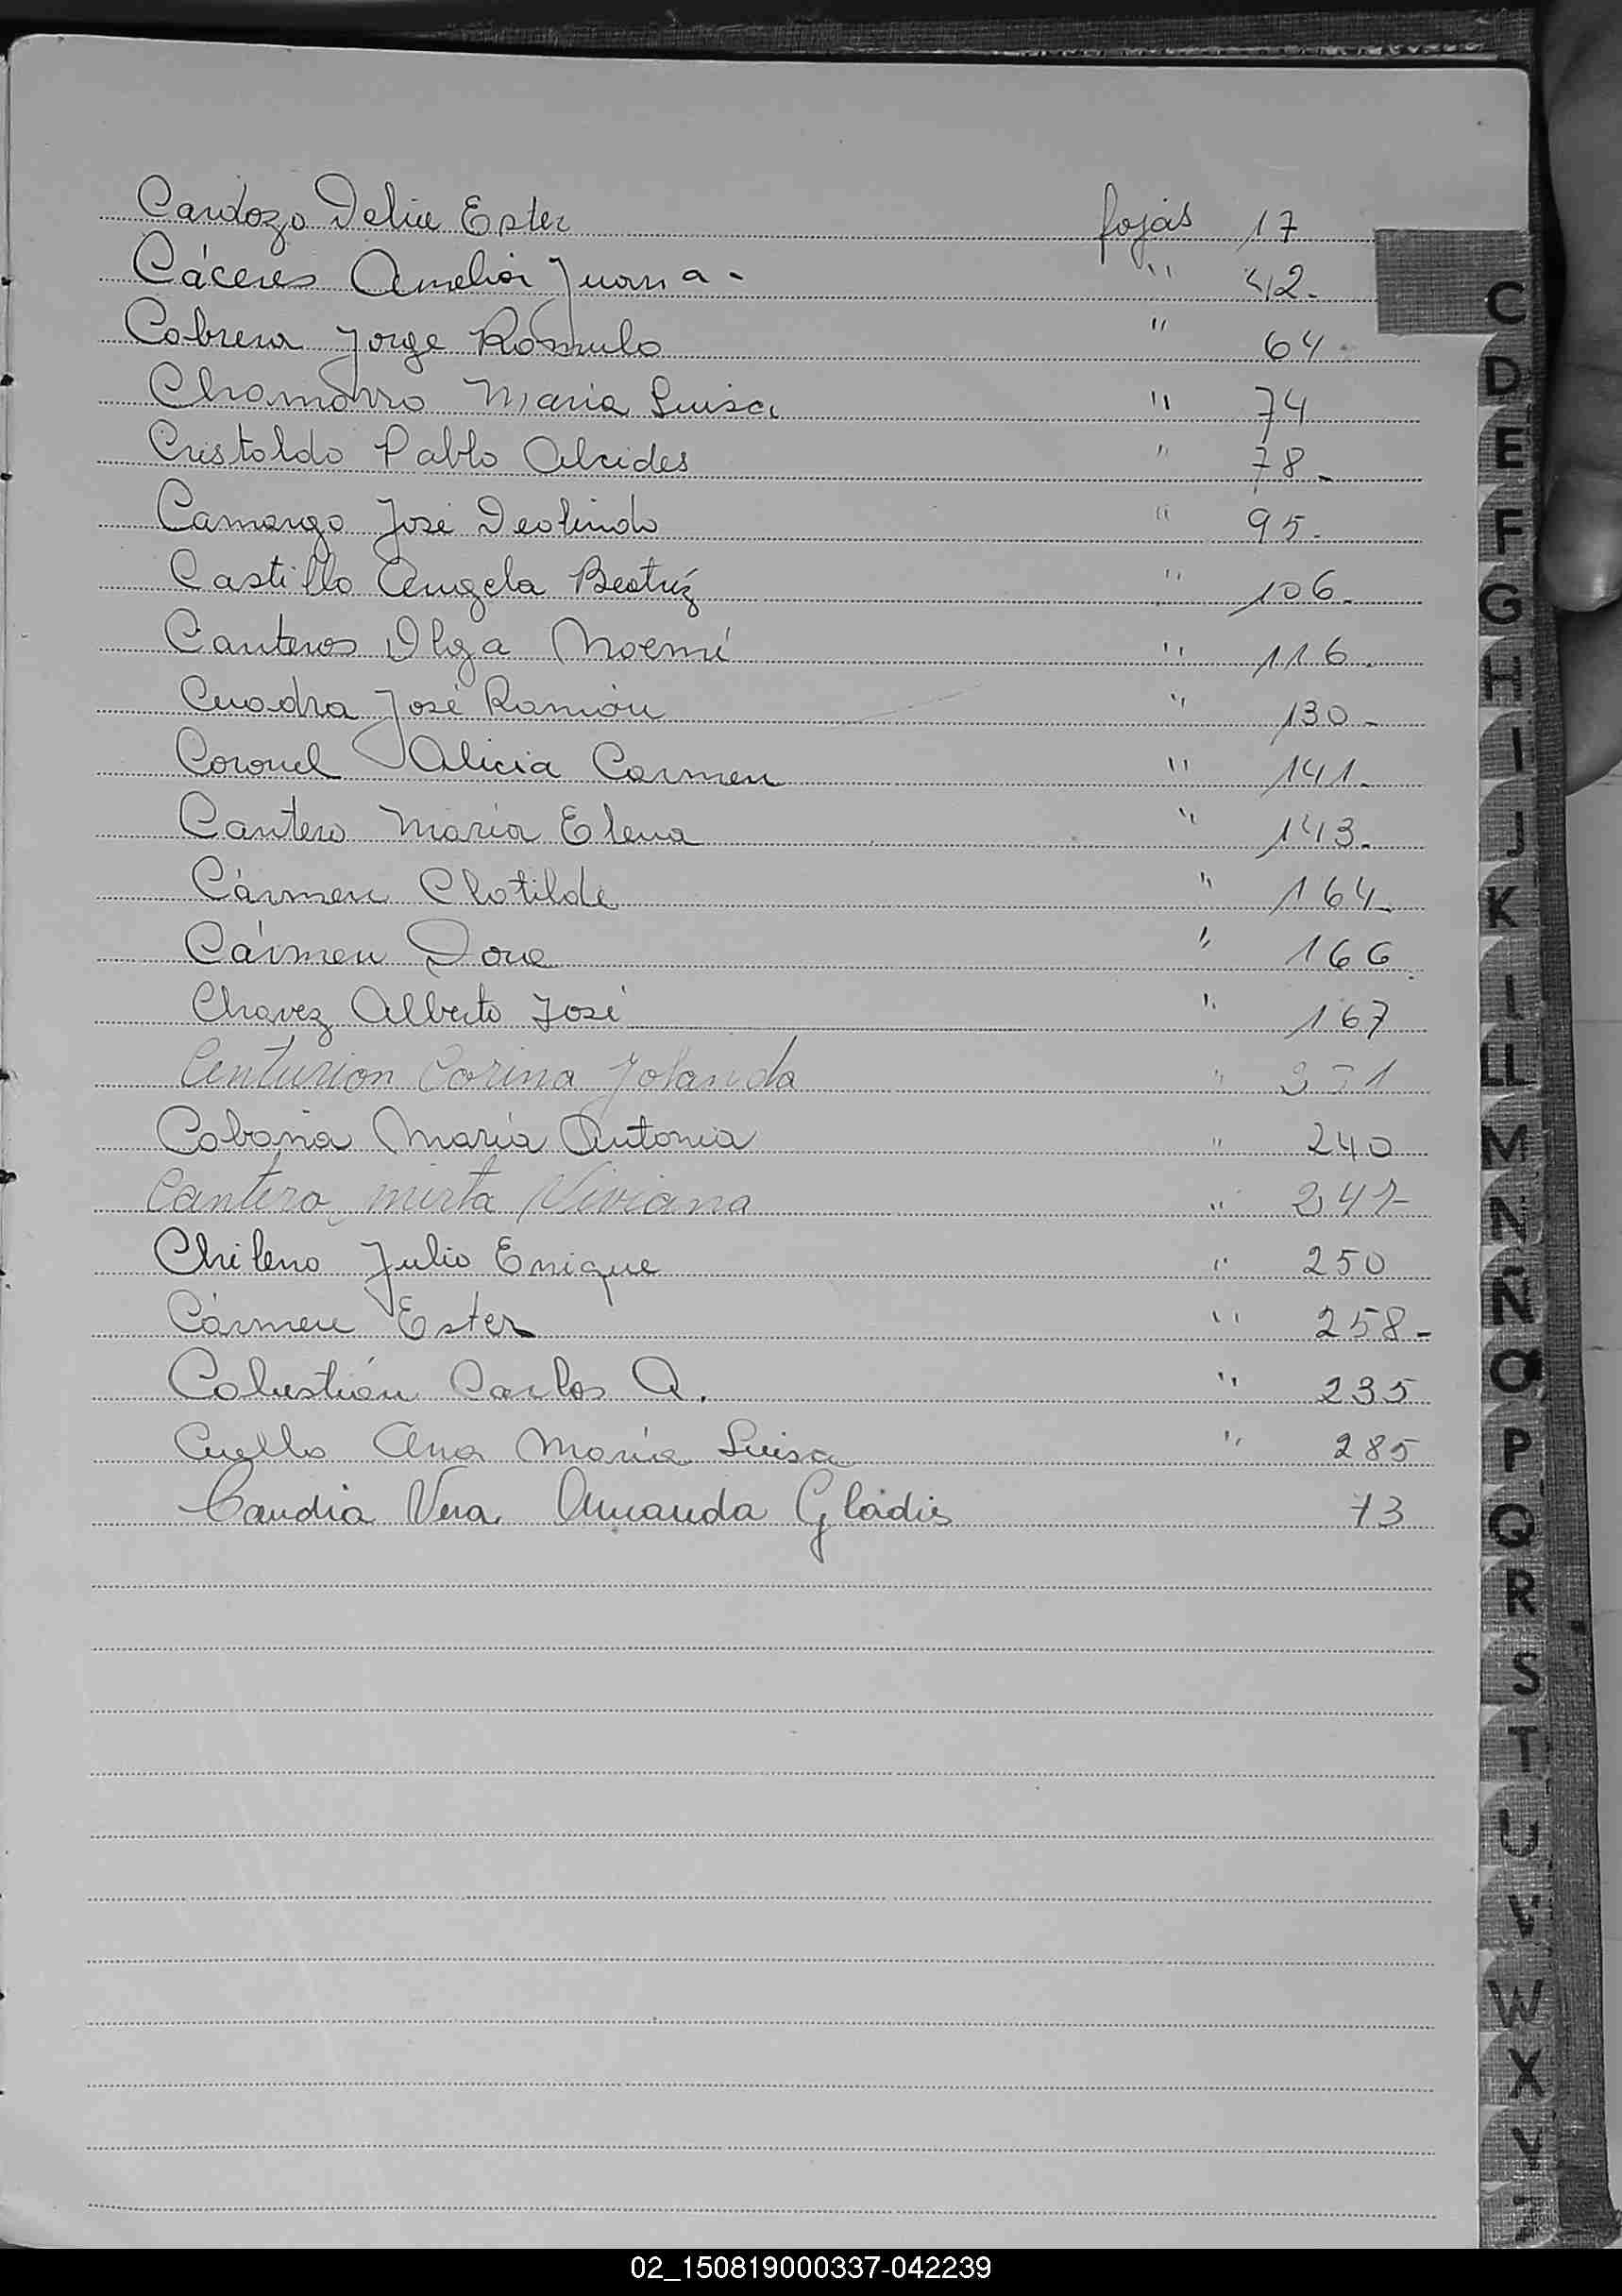 Cardozo Delia Ester fojas 17
Cáceres Amelia Juana - " 42.
Cabrera Jorge Rómulo " 64.
Chamorro María Luisa " 74
Cristaldo Pablo Alcides " 78.
Camargo José Deolindo " 95.
Castillo Angela Beatríz " 106.
Canteros Olga Noemí " 116.
Cuadra José Ramón " 130 -
Coronel Alicia Carmen " 141.
Cantero María Elena " 143.
Cármen Clotilde " 164.
Cármen Dora " 166.
Chavez Alberto José " 167
Centurion Corina Jolanda "
Cabaña María Antonia " 240
Cantero, mirta Viviana "
Chileno Julio Enrique " 250
Cármen Ester " 258 -
Carlos A. " 235
Cuello Ana María Luisa " 285
Candia Vera Amanda Gladis 73
C
D
E
F
G
H
I
J
K
L
LL
M
N
Ñ
O
P
Q
R
S
T
U
V
W
X
Y
Z
02_150819000337-042239